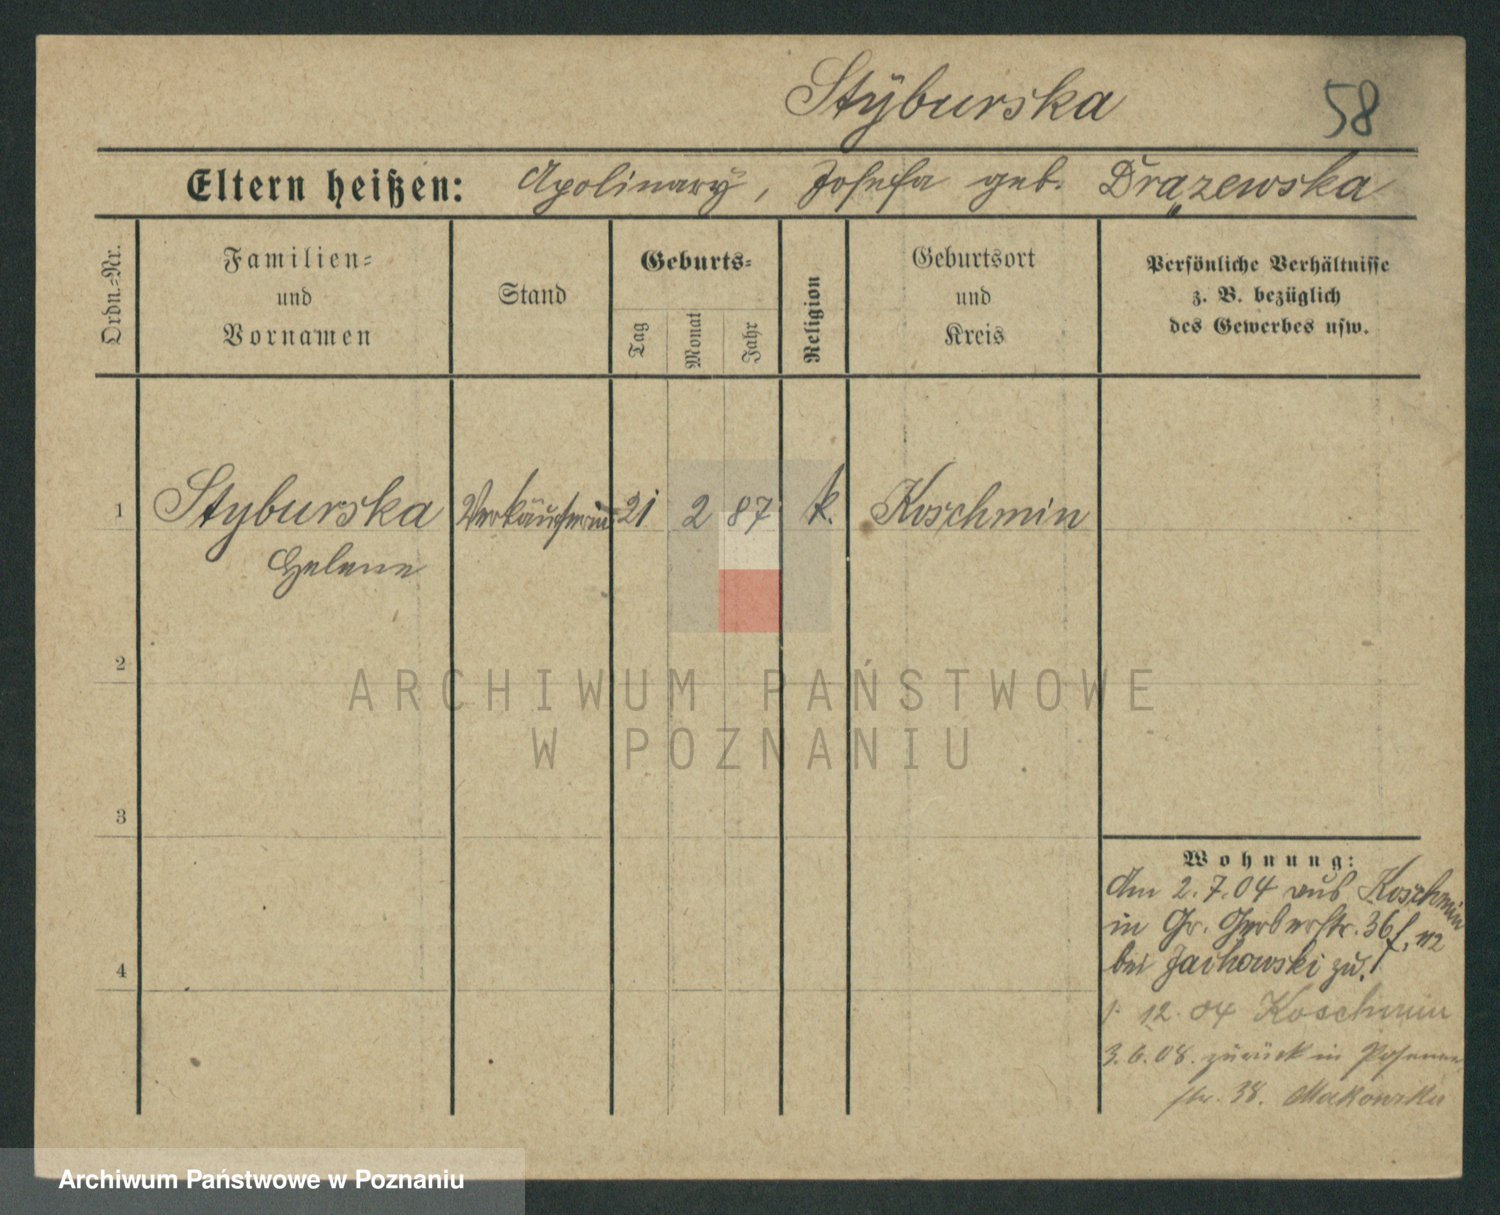 Stÿburska
58
Eltern heißen: Apolinarÿ, Josefa geb. Drązewska
Ordn.=Nr.
Familien=
und
Vornamen
Stand
Geburts=
Tag
Monat
Jahr
Religion
Geburtsort
und
Kreis
Persönliche Verhältnisse
z. B. bezüglich
des Gewerbes usw.
1 Styburska Verkäuferin 21 2 87 k. Koschmin
Helene
2
3
4
Wohnung:
Am 2.7.04 aus Koschmin
in Gr. Gerberstr. 36
bei Jachowski zu.
12. 04 Koschmin
3.6.08. zurück in
str. 38. Makowska
ARCHIWUM PAŃSTWOWE
W POZNANIU
Archiwum Państwowe w Poznaniu